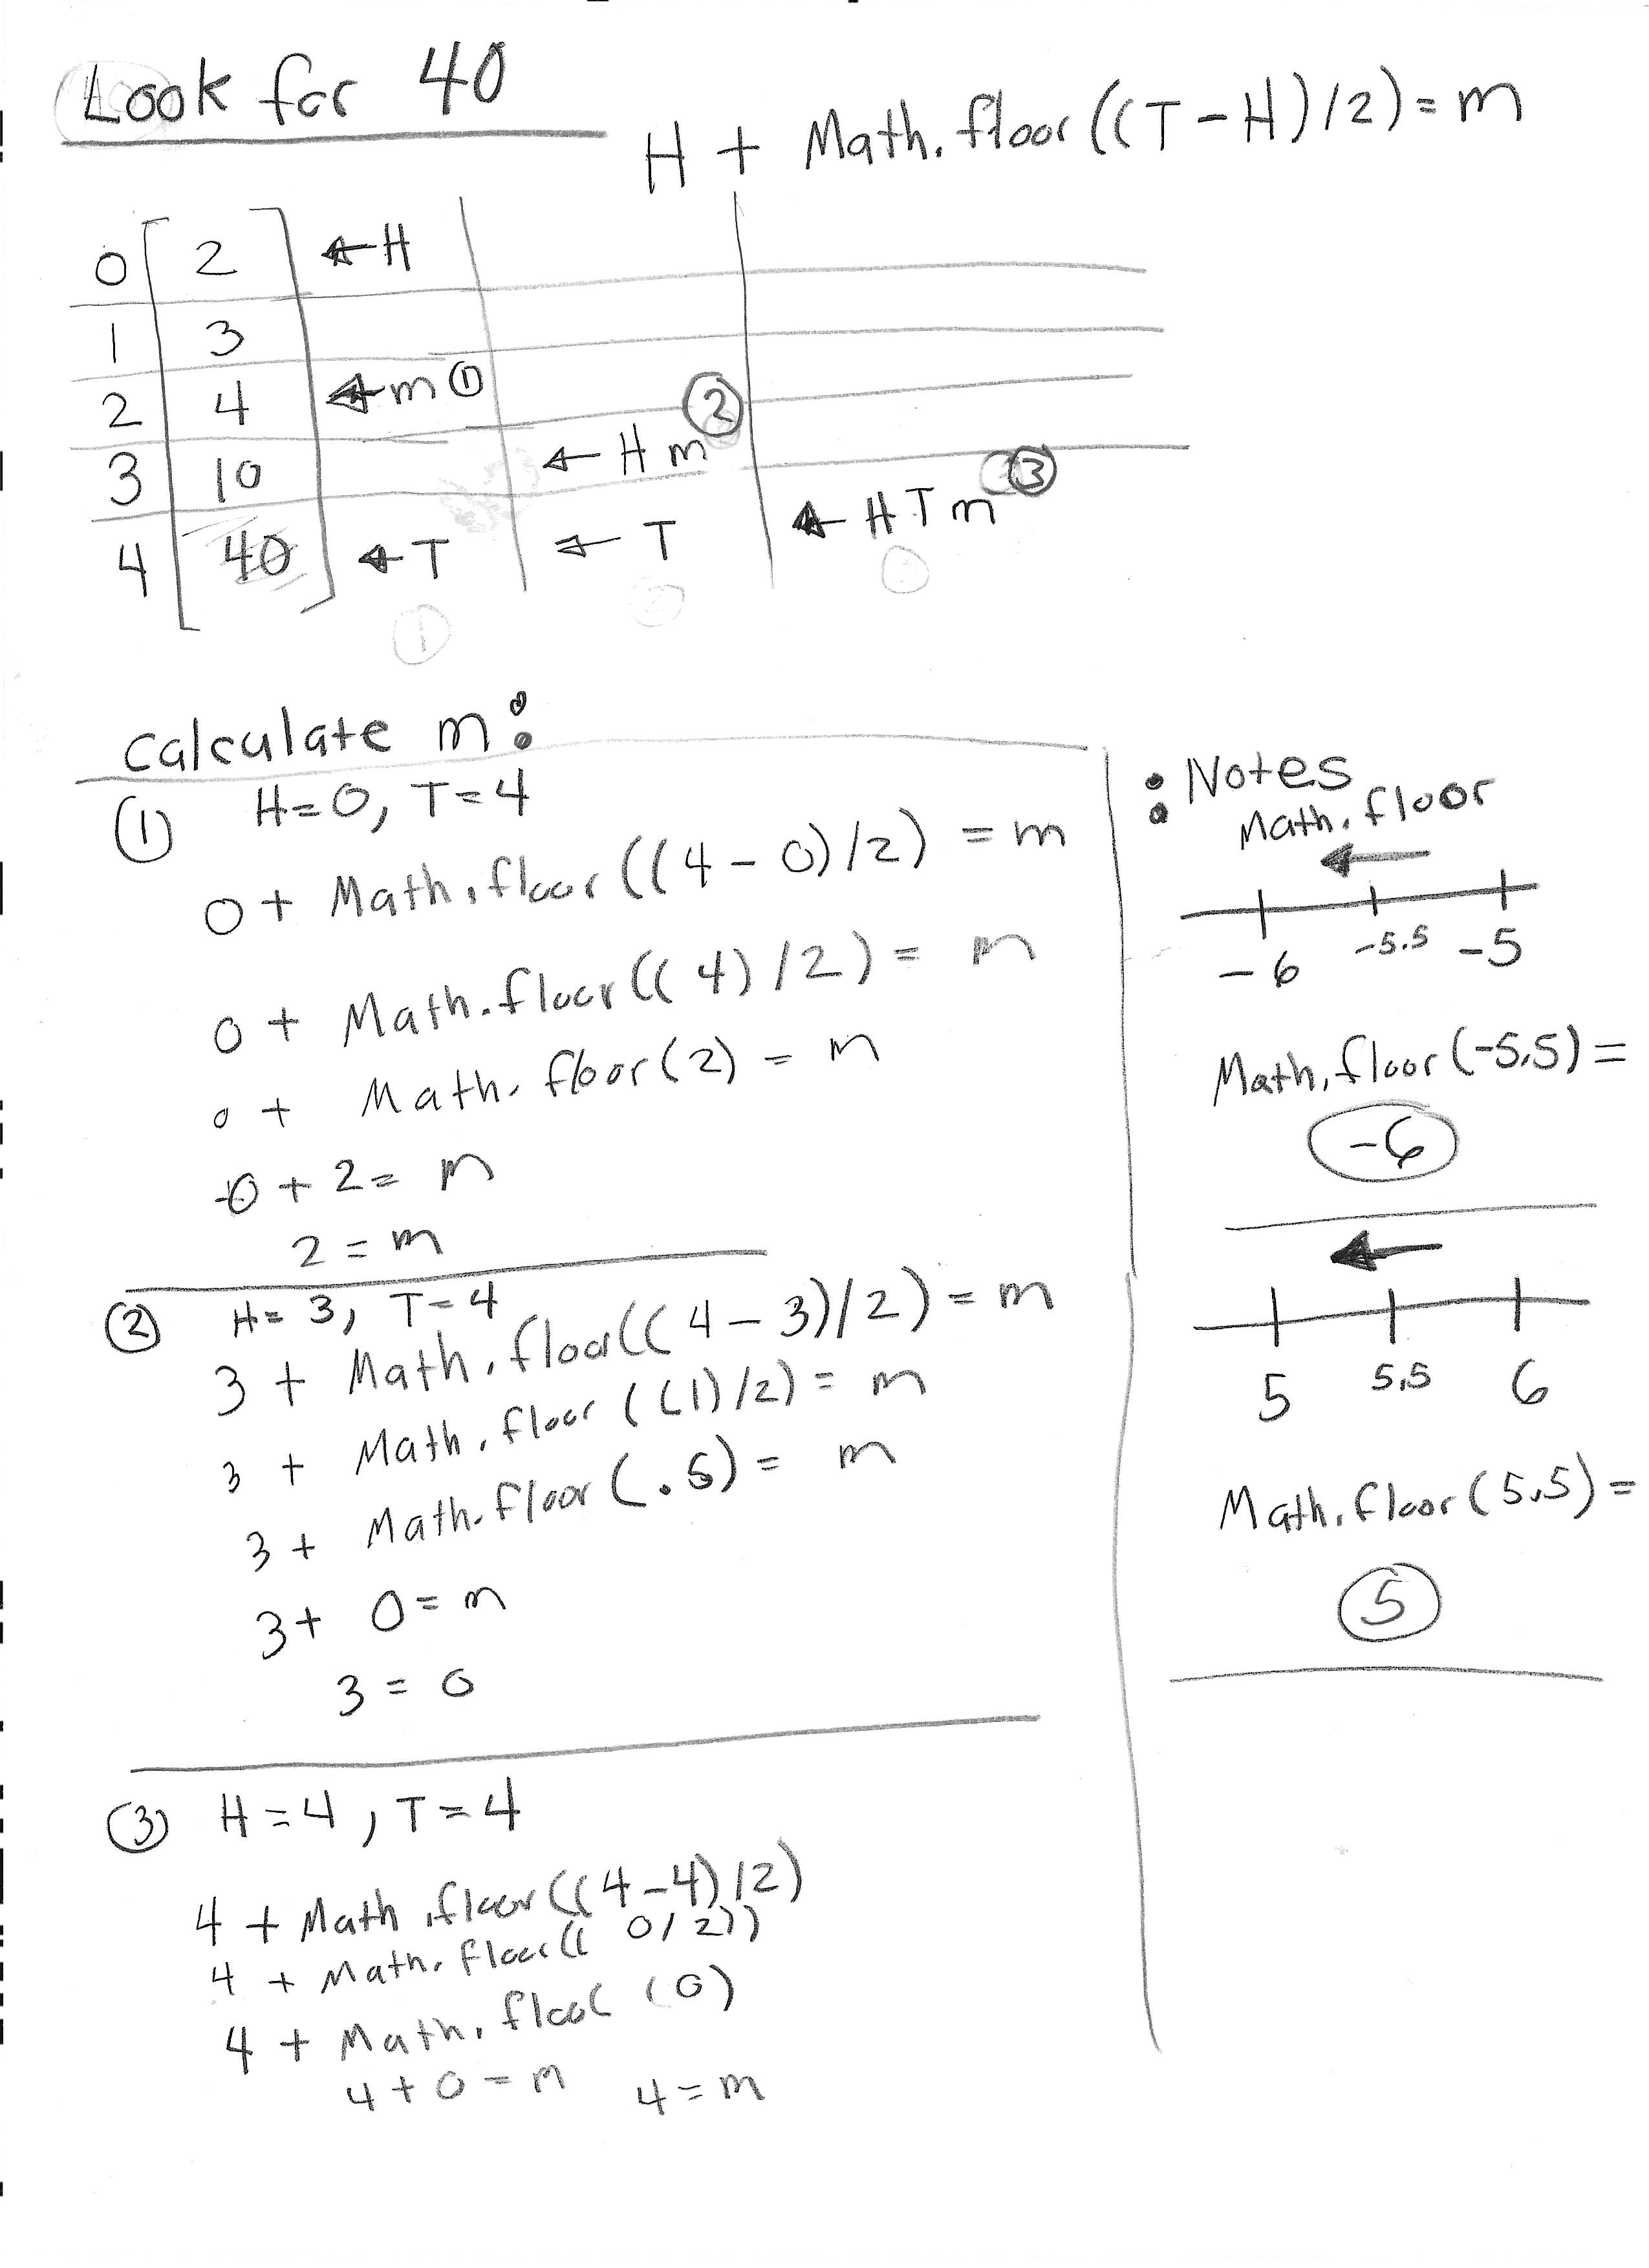 Look for 40
H + Math.floor((T-H)/2)=m
0 2 H
1 3
2 4 m ①
3 10 H m ②
4 40 T T H T m ③
① ②
calculate m:
① H=0, T=4
0 + Math.floor((4-0)/2) = m
0 + Math.floor((4)/2) = m
0 + Math.floor(2) = m
0 + 2 = m
2 = m
② H=3, T=4
3 + Math.floor((4-3)/2) = m
3 + Math.floor((1)/2) = m
3 + Math.floor(.5) = m
3 + 0 = m
3 = 0
③ H=4, T=4
4 + Math.floor((4-4)/2)
4 + Math.floor((0/2))
4 + Math.floor(0)
4 + 0 = m 4 = m
: Notes
Math.floor
-6 -5.5 -5
Math.floor(-5.5) =
-6
5 5.5 6
Math.floor(5.5) =
5